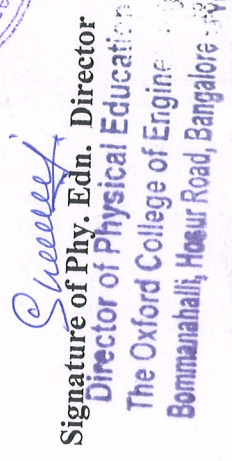 Signature of Phy. Edn. Director
Director of Physical Education
The Oxford College of
Bommanahalli, Hosur Road, Bangalore